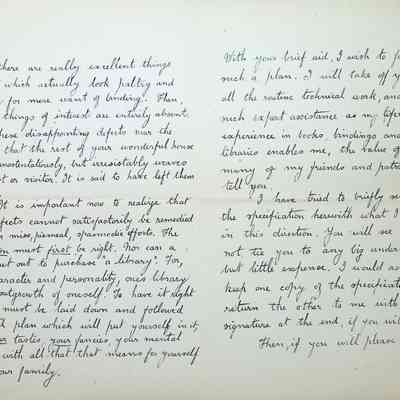 there are really excellent things
which actually look paltry and
for mere want of binding. Then,
things of interest are entirely absent.
these disappointing defects mar the
that the rest of your wonderful house
unostentatiously, but irresistibly weaves
or visitor. It is said to have left them
It is important now to realize that
defects cannot satisfactorily be remedied
miss, piecemeal, spasmodic efforts. The
must first be right. Nor can a
out to purchase "a library". For,
character and personality, one's library
outgrowth of oneself. To have it right
must be laid down and followed
A plan which will put yourself in it,
tastes, your fancies, your mental
with all that that means for yourself
your family.
With your brief aid, I wish to
such a plan. I will take off
all the routine technical work, and
such expert assistance as my life
experience in books, bindings and
libraries enables me, the value of
many of my friends and
tell you.
I have tried to briefly
the specification herewith what I
in this direction. You will see
not tie you to any big
but little expense. I would
keep one copy of the
return the other to me with
signature at the end, if you
Then, if you will please